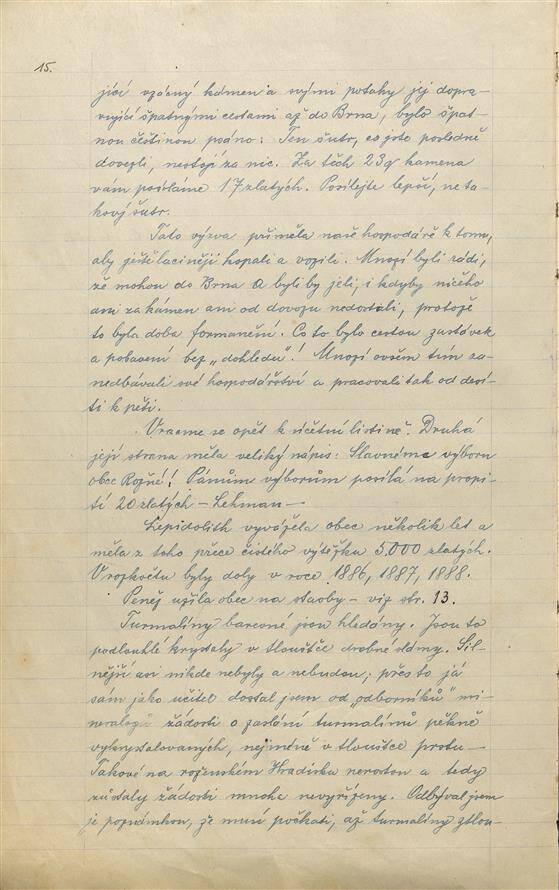 15.
jící vzácný kámen a svými potahy jej dopra-
vující špatnými cestami až do Brna, bylo špat-
nou češtinou psáno: Ten šutr, co jste posledně
dovezli, nestojí za nic. Za těch 23 q kamena
vám posíláme 17 zlatých. Posílejte lepší, ne ta-
kový šutr.
Tato výzva přiměla naše hospodáře k tomu,
aby ještě laciněji kopali a vozili. Mnozí byli rádi,
že mohou do Brna a byli by jeli, i kdyby ničeho
ani za kámen ani od dovozu nedostali, protože
to byla doba formanění. Co to bylo cestou zastávek
a pobavení bez „dohledu“! Mnozí ovšem tím za-
nedbávali své hospodářství a pracovali tak od desí-
ti k pěti.
Vraťme se opět k účetní listině. Druhá
její strana měla veliký nápis: Slavnému výboru
obce Rožné! Pánům výborům posílá na propi-
tí 20 zlatých – Lehman –
Lepidolith vyvážela obec několik let a
měla z toho přece čistého výtěžku 5.000 zlatých.
V rozkvětu byly doly v roce 1886, 1887, 1888.
Peněz užila obec na stavby – viz str. 13.
Turmalíny barevné jsou hledány. Jsou to
podlouhlé krystaly v tloušťce drobné slámy. Sil-
nější asi nikde nebyly a nebudou; přes to já
sám jako učitel dostal jsem od „odborníků“ mi-
neralogů žádosti o zaslání turmalínů pěkně
vykrystalovaných, nejméně v tloušťce prstu –
Takové na roženském Hradisku nerostou a tedy
zůstaly žádosti mnohé nevyřízeny. Odbýval jsem
je poznámkou, že musí počkati, až turmalíny ztlou-